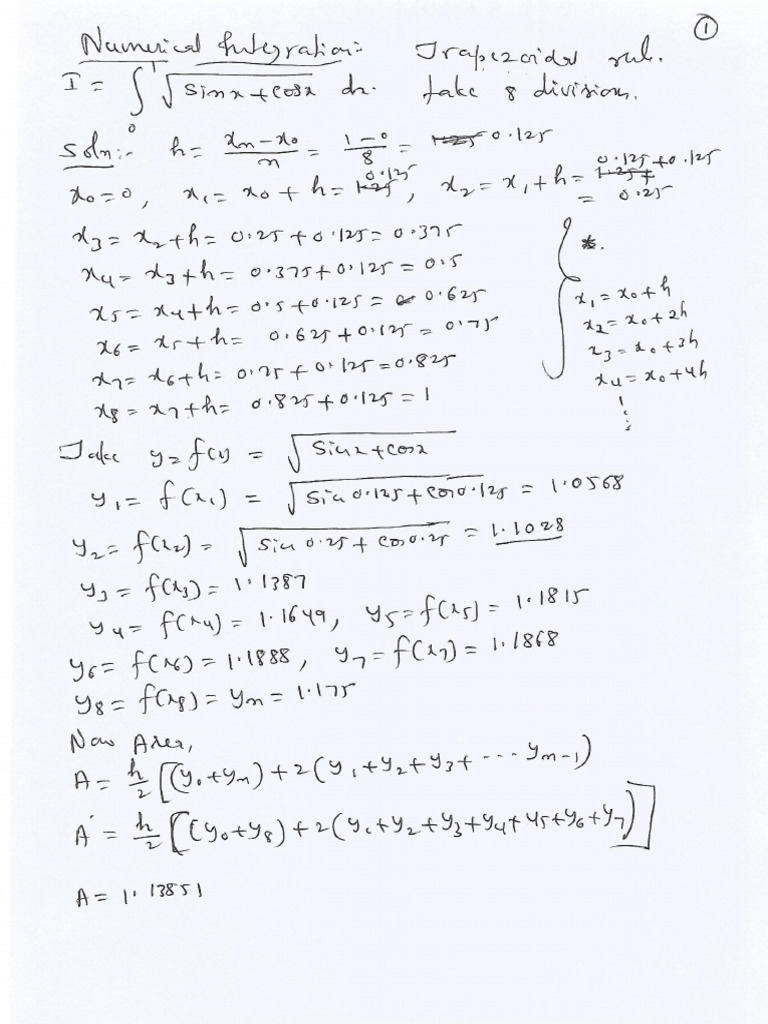 ①
Numerical Integration:- Trapezoidal rule.
I = ∫₀¹ √(sin x + cos x) dx. take 8 division.
Soln:- h = (xn - x0)/n = (1-0)/8 = 0.125
x0 = 0, x1 = x0 + h = 0.125, x2 = x1 + h = 0.125 + 0.125
= 0.25
x3 = x2 + h = 0.25 + 0.125 = 0.375
x4 = x3 + h = 0.375 + 0.125 = 0.5
x5 = x4 + h = 0.5 + 0.125 = 0.625
x6 = x5 + h = 0.625 + 0.125 = 0.75
x7 = x6 + h = 0.75 + 0.125 = 0.825
x8 = x7 + h = 0.825 + 0.125 = 1
*.
x1 = x0 + h
x2 = x0 + 2h
x3 = x0 + 3h
x4 = x0 + 4h
Take y = f(x) = √(sin x + cos x)
y1 = f(x1) = √(sin 0.125 + cos 0.125) = 1.0568
y2 = f(x2) = √(sin 0.25 + cos 0.25) = 1.1028
y3 = f(x3) = 1.1387
y4 = f(x4) = 1.1649, y5 = f(x5) = 1.1815
y6 = f(x6) = 1.1888, y7 = f(x7) = 1.1868
y8 = f(x8) = yn = 1.175
Now Area,
A = h/2 [(y0 + yn) + 2(y1 + y2 + y3 + --- yn-1)
A = h/2 [(y0 + y8) + 2(y1 + y2 + y3 + y4 + y5 + y6 + y7)]
A = 1.13851